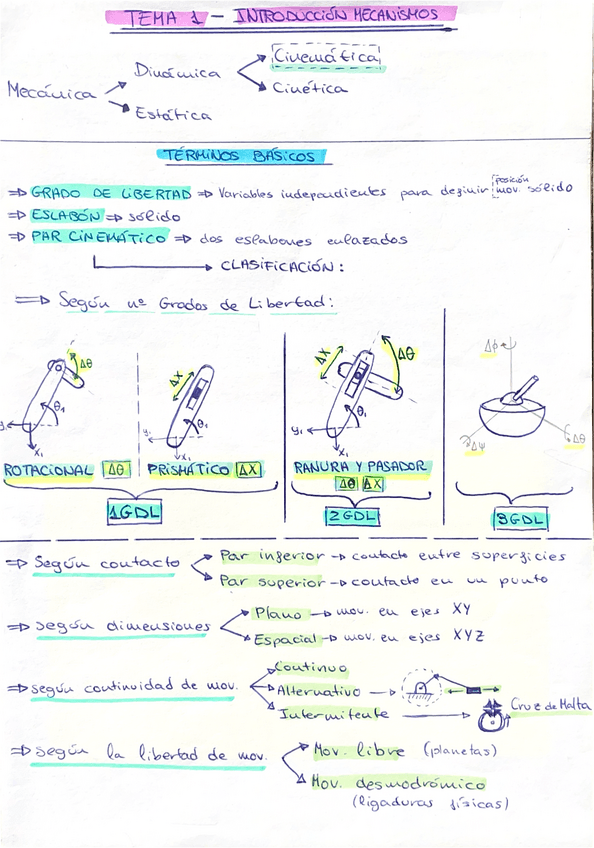 TEMA 1 - INTRODUCCIÓN MECANISMOS
Mecánica
Dinámica
Cinemática
Cinética
Estática
TÉRMINOS BÁSICOS
⇒ GRADO DE LIBERTAD ⇒ Variables independientes para definir posición mov. sólido
⇒ ESLABÓN ⇒ sólido
⇒ PAR CINEMÁTICO ⇒ dos eslabones enlazados
→ CLASIFICACIÓN:
⇒ Según nº Grados de Libertad:
Δθ
θ₁
y₁
x₁
ROTACIONAL Δθ
ΔX
θ₁
y₁
x₁
PRISMÁTICO ΔX
1GDL
ΔX
Δθ
θ₁
y₁
x₁
RANURA Y PASADOR
Δθ ΔX
2GDL
Δϕ
Δψ
Δθ
3GDL
⇒ Según contacto
Par inferior → contacto entre superficies
Par superior → contacto en un punto
⇒ Según dimensiones
Plano → mov. en ejes XY
Espacial → mov. en ejes XYZ
⇒ Según continuidad de mov.
Continuo
Alternativo →
Intermitente →
Cruz de Malta
⇒ Según la libertad de mov.
Mov. libre (planetas)
Mov. desmodrómico
(ligaduras físicas)